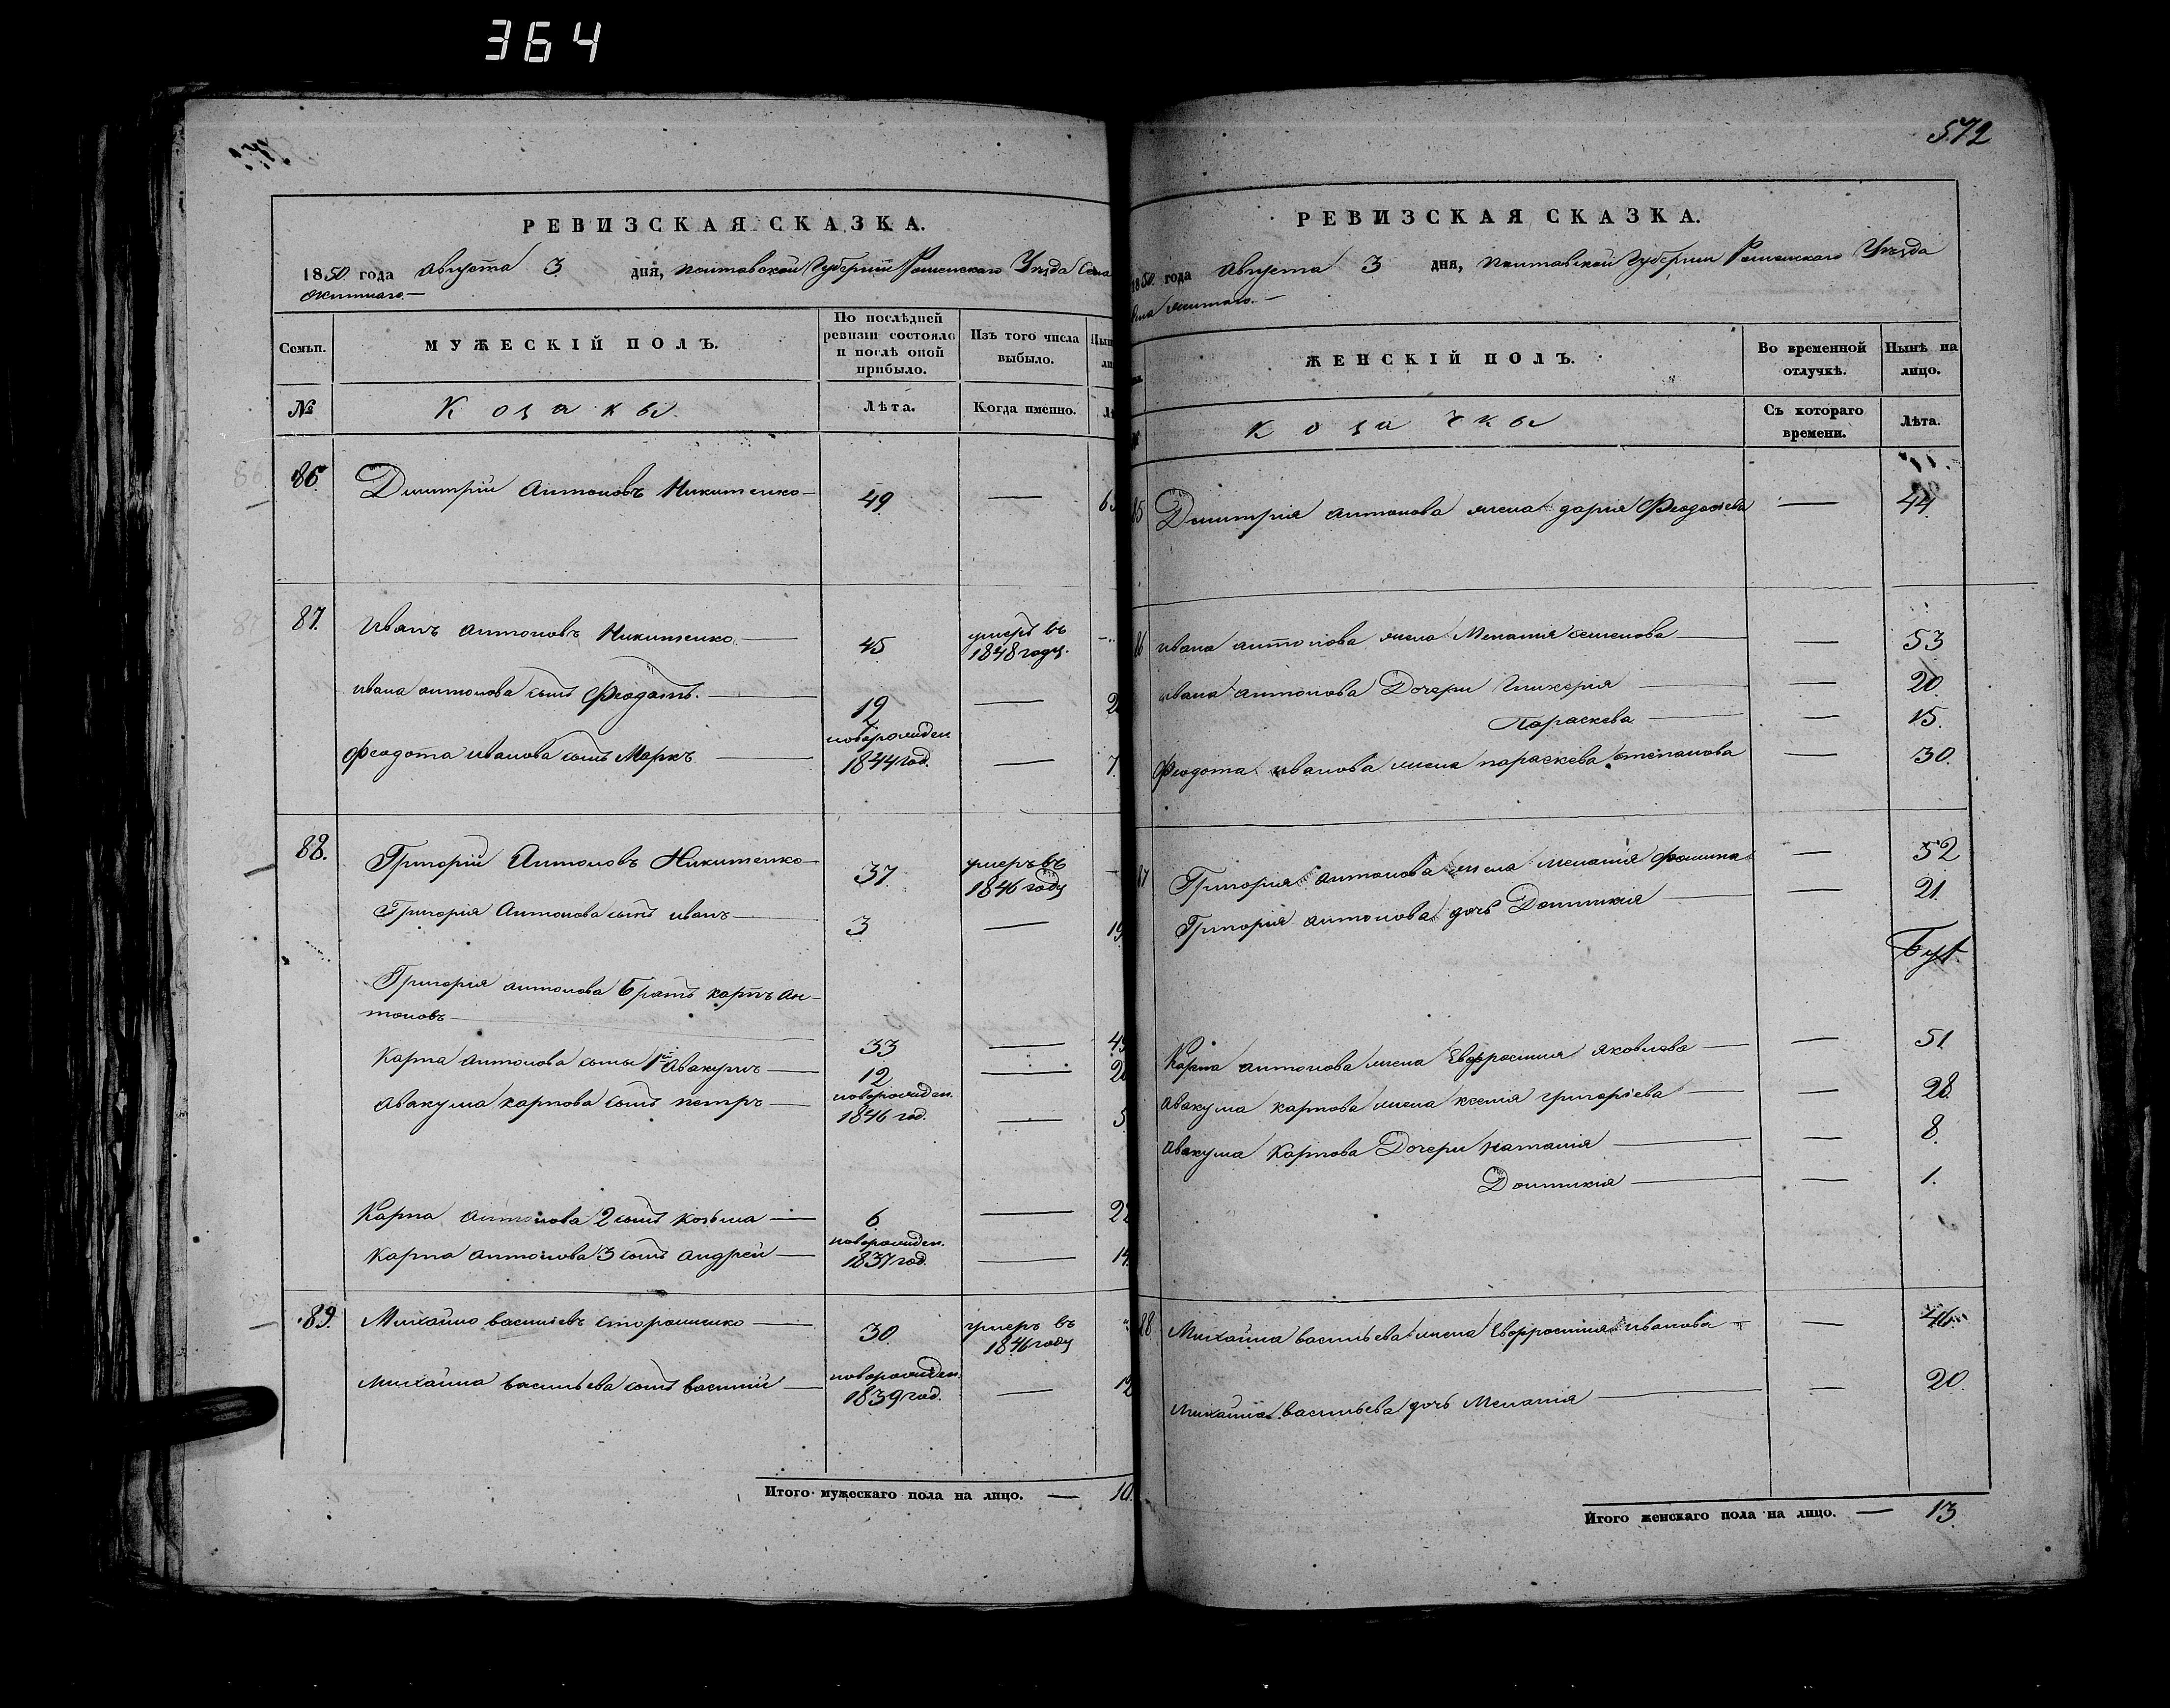 364
572
РЕВИЗСКАЯ СКАЗКА.
1850 года Августа 3 дня, Полтавской Губернии Роменскаго Уезда Села
Семьи.
МУЖЕСКІЙ ПОЛЪ.
По послѣдней ревизіи состояло и послѣ оной прибыло.
Изъ того числа выбыло.
№
Козаки.
Лѣта.
Когда именно.
86. Дмитрій Антоновъ Никитенко — 49 —
87. Иванъ Антоновъ Никитенко — 45 умеръ въ 1848 году.
Ивана Антонова сынъ Феодотъ. — 19 —
Феодота Иванова сынъ Маркъ — новорожден 1844 год. — 7.
88. Григорій Антоновъ Никитенко — 37. умеръ въ 1846 году
Григорія Антонова сынъ Иванъ — 3 — 19
Григорія Антонова братъ Карпъ Ан-
тоновъ — 33 —
Карпа Антонова сыны 1й Авакумъ — 12 —
Авакума Карпова сынъ Петръ — новорожден. 1846 год. — 5
Карпа Антонова 2 сынъ Козьма — 6 — 22
Карпа Антонова 3 сынъ Андрей — новорожден. 1837 год. — 14
89. Михайло Васильевъ Стороженко — 30. умеръ въ 1846 году
Михайла Васильева сынъ Василий — новорожден. 1839 год. — 12
Итого мужескаго пола на лицо. — 10.
РЕВИЗСКАЯ СКАЗКА.
1850 года Августа 3 дня, Полтавской Губернии Роменскаго Уезда
ЖЕНСКІЙ ПОЛЪ.
Во временной отлучкѣ.
Нынѣ на лицо.
Козачки
Съ котораго времени.
Лѣта.
85 Дмитрія Антонова жена Дарія Феодосіева — 44.
86 Ивана Антонова жена Меланія Семенова — 53
Ивана Антонова Дочери Гликерія — 20.
Параскева — 15.
Феодота Иванова жена Параскева Степанова — 30.
87 Григорія Антонова жена Меланія Фомина — 52
Григорія Антонова дочь Домникія — 21.
Карпа Антонова жена Евфросинія Яковлева — 51
Авакума Карпова жена Ксенія Григоріева — 28.
Авакума Карпова Дочери Наталія — 8.
Домникія — 1.
88. Михайла Васильева жена Евфросинія Иванова — 46.
Михайла Васильева дочь Меланія — 20.
Итого женскаго пола на лицо. — 13